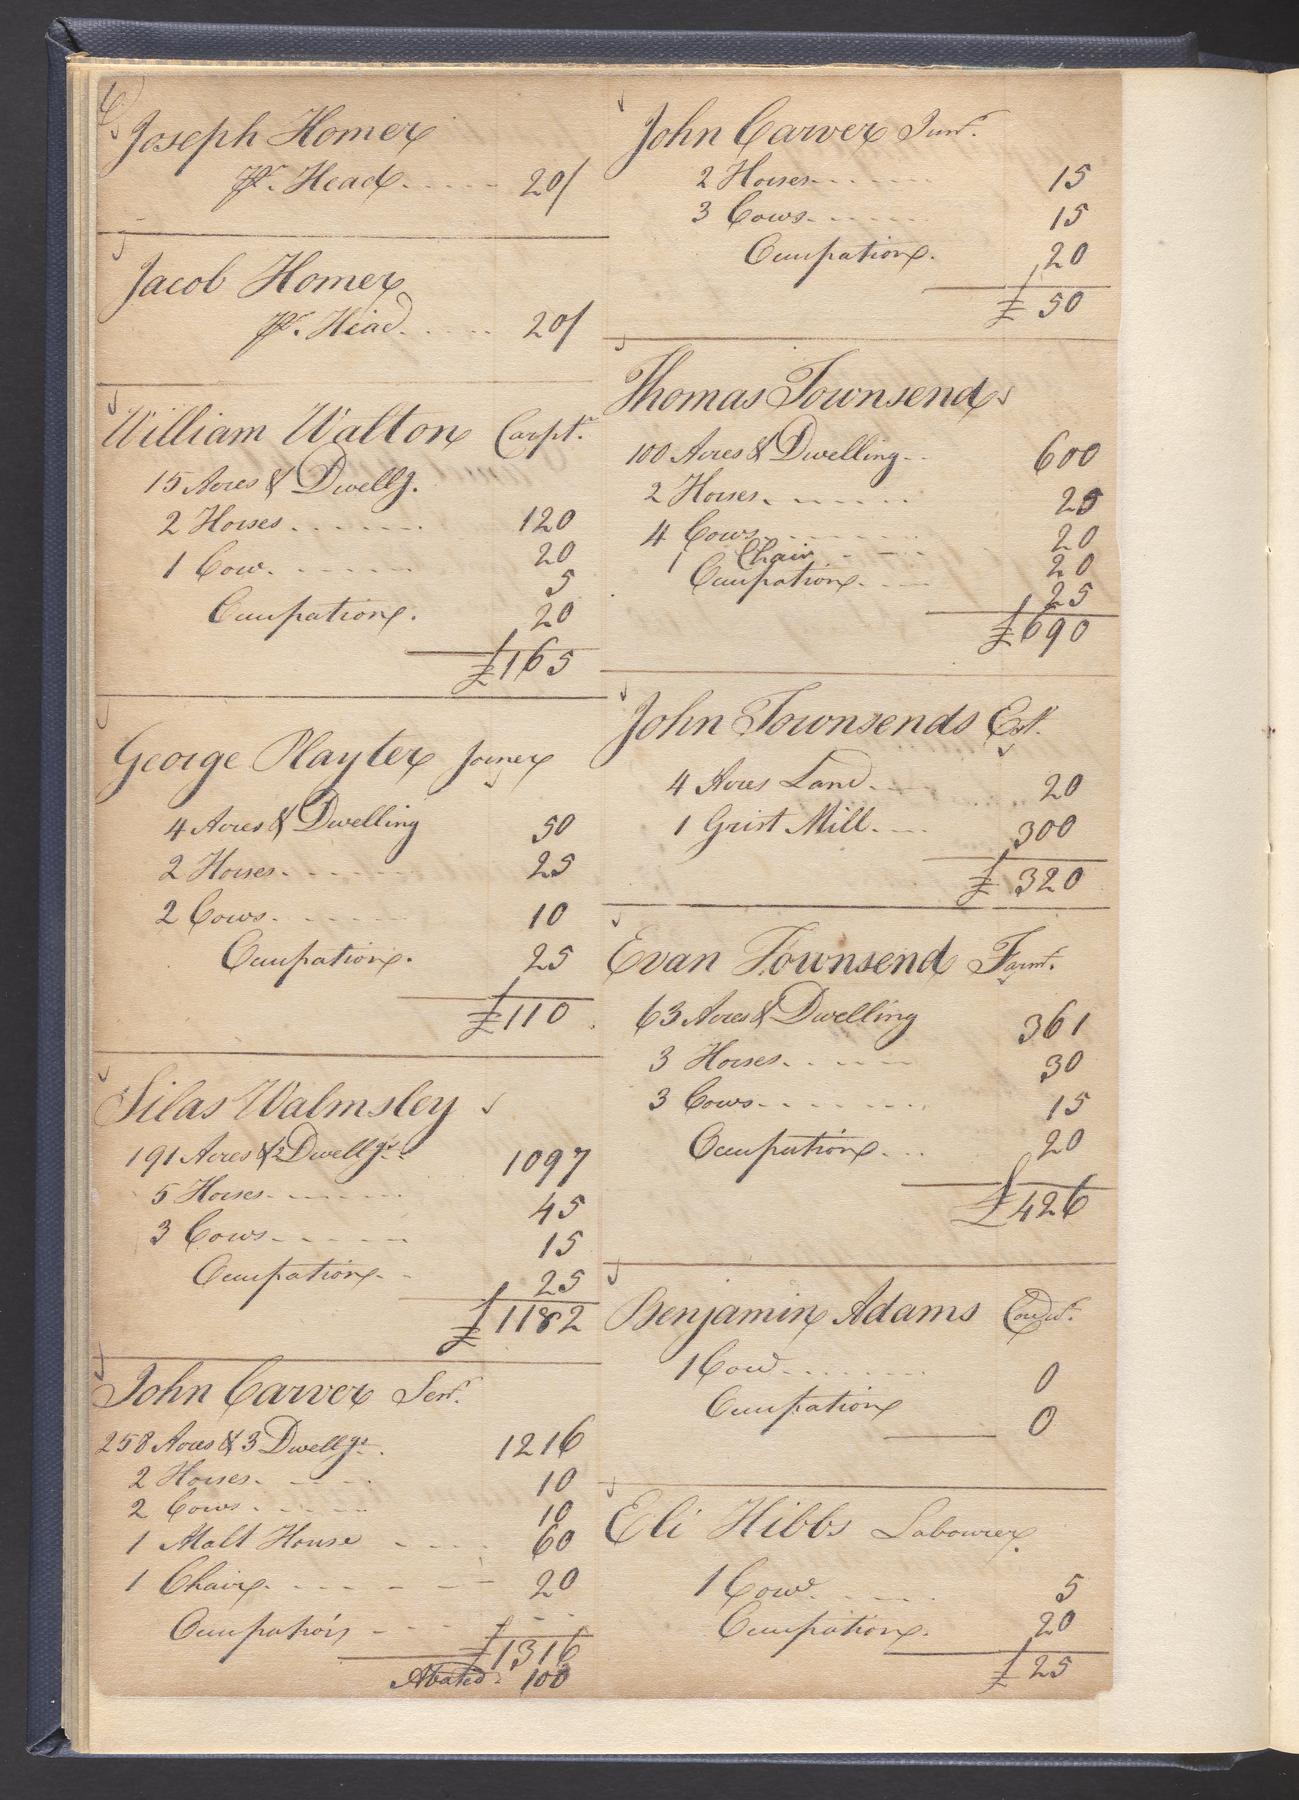 6
Joseph Homer
Pr. Head 20/
Jacob Homer
Pr. Head 20/
William Walton Carpt.
15 Acres & Dwellg.
2 Horses 120
1 Cow 20
5
Occupation. 20
£165
George Playter Joiner
4 Acres & Dwelling 50
2 Horses 25
2 Cows 10
Occupation. 25
£110
Silas Walmsley
191 Acres & 2 Dwellgs. 1097
5 Horses 45
3 Cows 15
Occupation 25
£1182
John Carver Senr.
258 Acres & 3 Dwellgs. 1216
2 Horses 10
2 Cows 10
1 Malt House 60
1 Chair 20
Occupation
£1316
Abated 100
John Carver Junr.
2 Horses 15
3 Cows 15
Occupation. 20
£50
Thomas Townsend
100 Acres & Dwelling 600
2 Horses 25
4 Cows 20
1 Chair 20
Occupation 25
£690
John Townsends Est.
4 Acres Land 20
1 Grist Mill 300
£320
Evan Townsend Farmr.
63 Acres & Dwelling 361
3 Horses 30
3 Cows 15
Occupation 20
£426
Benjamin Adams
1 Cow 0
Occupation 0
Eli Hibbs Labourer
1 Cow 5
Occupation. 20
£25